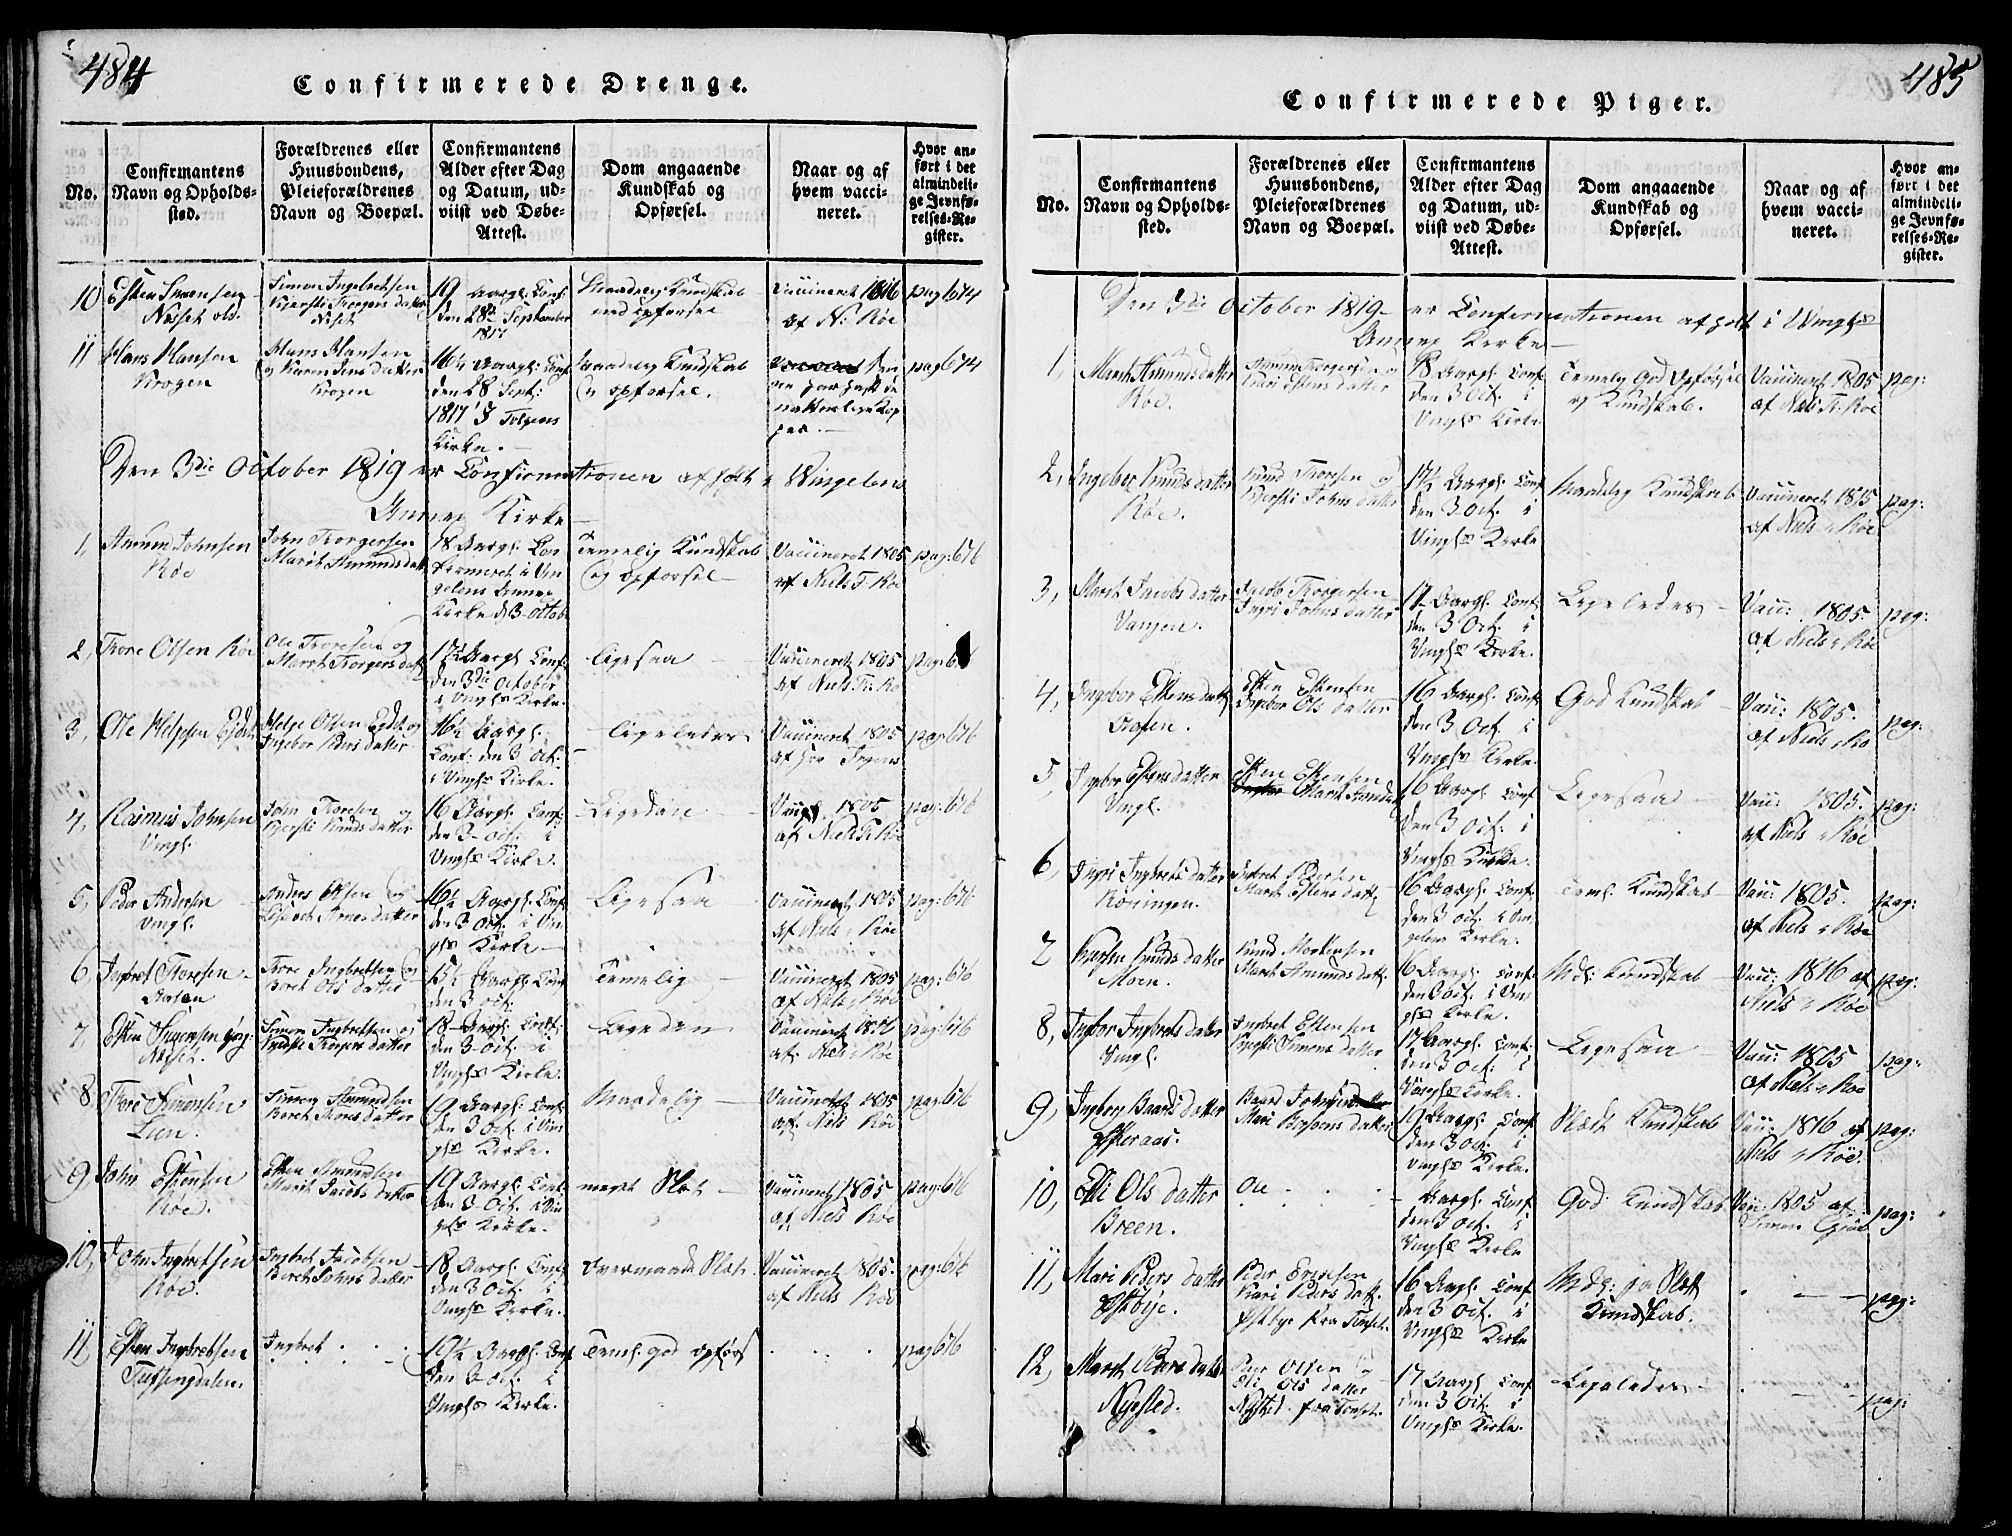 484
Confirmerede Drenge.
No.
Confirmantens
Navn og Opholds-
sted.
Forældrenes eller
Huusbondens,
Pleieforældrenes
Navn og Boepæl.
Confirmantens
Alder efter Dag
og Datum, ud-
viist ved Døbe-
Attest.
Dom angaaende
Kundskab og
Opførsel.
Naar og af
hvem vacci-
neret.
Hvor an-
ført i det
almindeli-
ge Jevnfø-
relses-Re-
gister.
10 Esten Simensen
Næset
Simon Ingebretsen
Næset
19 Aargl. Conf:
den 28de September
1817
Maadelig Kundskab
med opførsel
Vaccineret 1816
af N: Røe
pag 674
11 Hans Hansen
Krogen
Hans Hansen
og Karen Jens datter
Krogen
16½ Aargl. Conf
den 28 Sept:
1817 I Tolgens
Kirke.
Maadelig Kundskab
og opførsel.
pag 674
Den 3die October 1819 er Confirmationen afholt i Vingelens
Annex Kirke
1, Amund Johnsen
Røe
John Torgersen
Marit Amunds datt
18 Aargl. Con
firmeret i Vin
gelens Annex
Kirke d 3 Octob
Temelig Kundskab
og opførsel
Vaccineret 1805
af Niels T. Røe
pag: 676
2, Tore Olsen Røe
Ole Toresen og
Marit Torgers datt
17½ Aargl. Conf:
den 3die October
i Vingls Kirke.
ligesaa
Vaccineret 1805
af Niels T: Røe
pag: 676
3, Ole Helgesen
Helge Olsen
Ingebor Peders datter
16½ Aargl.
Conf: den 3 Oct:
i Vingls Kirke.
ligeledes
Vaccineret 1805
pag 676
4, Rasmus Johnsen
Vingl.
John Toresen og
Kjersti Knuds datter
16 Aargl. Conf
den 3 Oct: i
Vingls Kirke.
Ligedan
Vacc: 1805
af Niels T: Røe
pag: 676
5, Peder Andersen
Vingl.
Anders Olsen og
16½ Aargl. Conf
den 3 Oct: i Vin
gls Kirke
Ligesaa
Vaccineret 1805
af Niels Røe
pag: 676
6, Ingebret Toresen
Aasen
Tore Ingebretsen og
Beret Ols datter
15½ Aargl. Conf
den 3 Oct:
Temelig
Vaccineret 1805
af Niels Røe
pag: 676
7, Esten Simensen yng:
Næset.
Simon Ingebretsen og
18 Aargl. Conf:
den 3 Oct: i
Vingls Kirke.
Ligedan
Vaccineret 1816
af Niels Røe
pag: 676
8, Tore Simonsen
Lien.
Simon Amundsen
Beret Tores datter
19 Aargl. Conf
den 3 Oct. i Vin
gls Kirke.
Maadelig
Vaccineret 1805
af Niels Røe
pag: 676
9, John Estensen
Røe.
Esten Amundsen
Marit Jacobs datter
19 Aargl. Conf
den 3 Oct. i Vin
gls Kirke.
meget Slet
Vaccineret 1805
af Niels Røe
pag: 676
10, John Ingebretsen
Røe.
Ingebret Jacobsen
Beret Johns datter
18 Aargl. Conf
den 3 Oct. i
Vingls Kirke.
overmaade Slet
Vaccineret 1805.
af Niels Røe
pag: 676
11, Esten Ingebretsen
Tufsingdalen
Ingebret
19½ Aargl. Conf
den 3 Oct. i
Vingls Kirke.
Teml. god opførs
pag 676
485
Confirmerede Piger.
No.
Confirmantens
Navn og Opholds-
sted.
Forældrenes eller
Huusbondens,
Pleieforældrenes
Navn og Boepæl.
Confirmantens
Alder efter Dag
og Datum, ud-
viist ved Døbe-
Attest.
Dom angaaende
Kundskab og
Opførsel.
Naar og af
hvem vacci-
neret.
Hvor an-
ført i det
almindeli-
ge Jevnfø-
relses-Re-
gister.
Den 3die October 1819 er Confirmationen afholt i Vingls
Annex Kirke
1, Marit Amunds datter
Røe.
Amund Torgersen og
Kari Estens datter
18 Aargl. Conf
den 3 Oct. i
Vingls Kirke
Temelig God Opførsel
og Kundskab.
Vaccineret 1805
af Niels T: Røe
pag:
2, Ingebor Knuds datter
Røe.
Knud Toresen og
Kjersti Johns datter
17½ Aargl. Conf
den 3 Oct. i
Vingls Kirke
Maadelig Kundskab
Vaccineret 1815
af Niels Røe
pag:
3, Marit Jacobs datter
Vangen.
Jacob Torgersen
Ingri Johns datter
17 Aargl. Conf.
den 3 Oct. i
Vingls Kirke.
Ligeledes
Vacc: 1805.
af Niels Røe
pag:
4, Ingebor Estens datt
Aasen.
Esten Estensen
Ingebor Ols datter
16 Aargl. Conf
den 3 Oct. i
Vingls Kirke.
God Kundskab
Vacc: 1805.
af Niels Røe
pag:
5, Ingebor Estens datter
Vingl.
Esten Estensen
Marit Amunds
16 Aargl. Conf
den 3 Oct. i
Vingls Kirke.
Ligesaa
Vacc: 1805.
af Niels Røe
pag:
6, Ingri Ingebrets datter
Røningen.
Ingebret Pedersen
Marit Estens datt
16 Aargl. Conf.
den 3 Oct. i Vin
gelens Kirke.
Teml. Kundskab
Vacc: 1805.
af Niels Røe
pag:
7 Knuds datter
Moen.
Knud Mortensen
Marit Amunds datt.
16 Aargl. Conf.
den 3 Oct. i Vin
gls Kirke.
Mdl. Kundskab
Vacc: 1816 af
Niels Røe
pag:
8, Ingebor Ingebrets datter
Vingl.
Ingebret Estensen
Kjersti Simens datter
17 Aargl. Conf.
den 3 Oct. i
Vingls Kirke.
Ligesaa
Vacc: 1805
af Niels Røe
pag:
9, Ingeborg Baards datter
Baard Johnsen
Mari datter
19 Aargl. Conf
den 3 Oct. i
Vingls Kirke.
Slædt Kundskab
Vacc: 1816 af
Niels Røe.
pag:
10, Elli Ols datter
Breen.
Ole
Aargl. Conf
den 3 Oct. i
Vingls Kirke
God Kundskab
Vacc: 1805 af
Simen
pag:
11, Mari Peders datter
Østbye.
Peder Ericksen
Kari Peders datt.
Østbye fra Tønset.
16 Aargl. Conf
den 3 Oct. i
Vingls Kirke
Mdl: ja Slæt
Kundskab.
pag:
12, Marit Peders datter
Nysted.
Peder Olsen og
Ols datter
Nysted. fra Tønset.
17 Aargl. Conf
den 3 Oct. i
Vingls Kirke.
Ligeledes
pag: